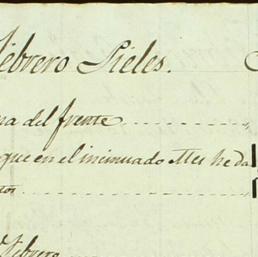 Febrero Pieles.
na del frente
que en el insinuado Mes he da
Febrero